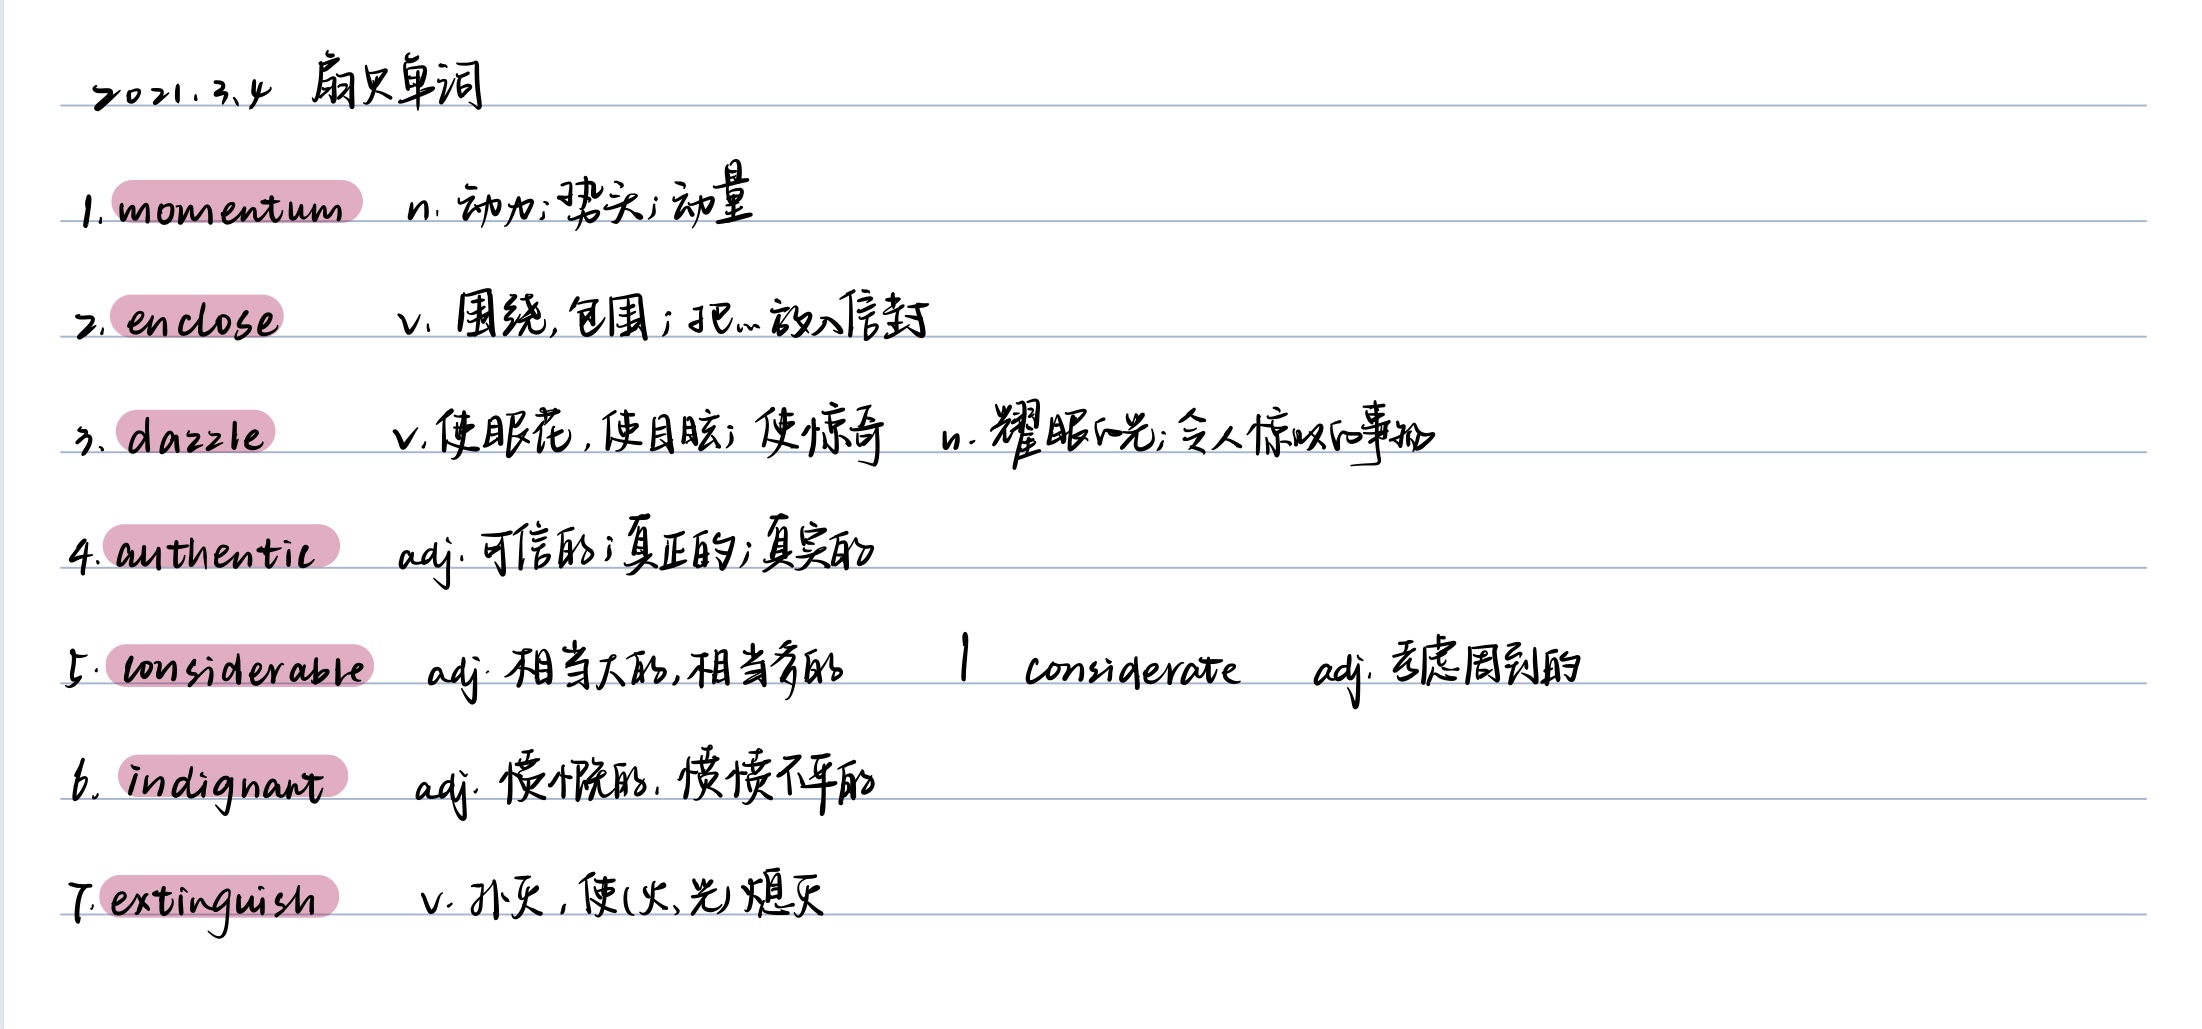 2021.3.4 扇贝单词
1. momentum n. 动力;势头;动量
2. enclose v. 围绕,包围;把…放入信封
3. dazzle v. 使眼花,使目眩;使惊奇 n. 耀眼的光;令人惊叹的事物
4. authentic adj. 可信的;真正的;真实的
5. considerable adj. 相当大的,相当多的 | considerate adj. 考虑周到的
6. indignant adj. 愤慨的,愤愤不平的
7. extinguish v. 扑灭,使(火、光)熄灭